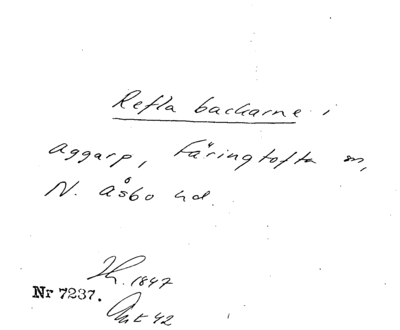 Refla backarne i
Aggarp, Färingtofta sn,
N. Åsbo hd.
Th. 1847
Nr 7237.
Ant 42